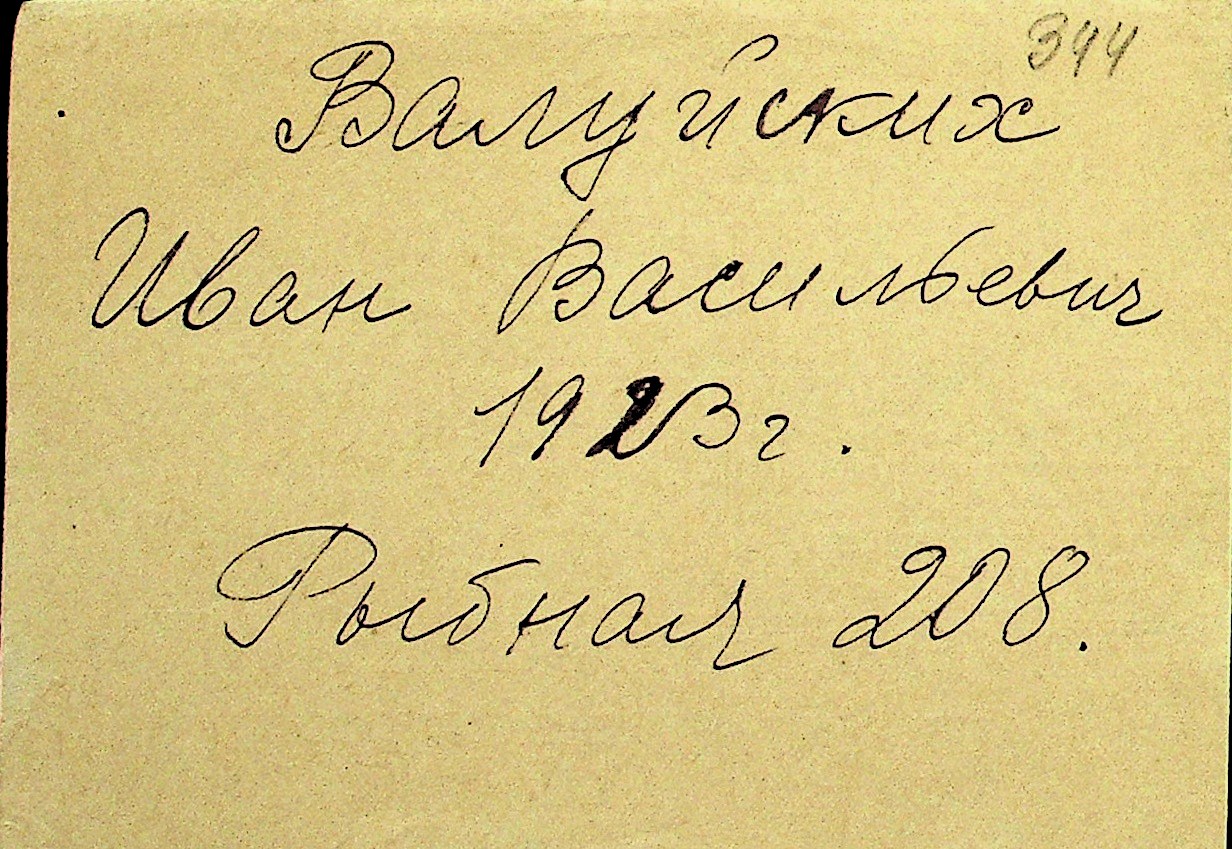 344
Валуйских
Иван Васильевич
1923 г.
Рыбная 208.